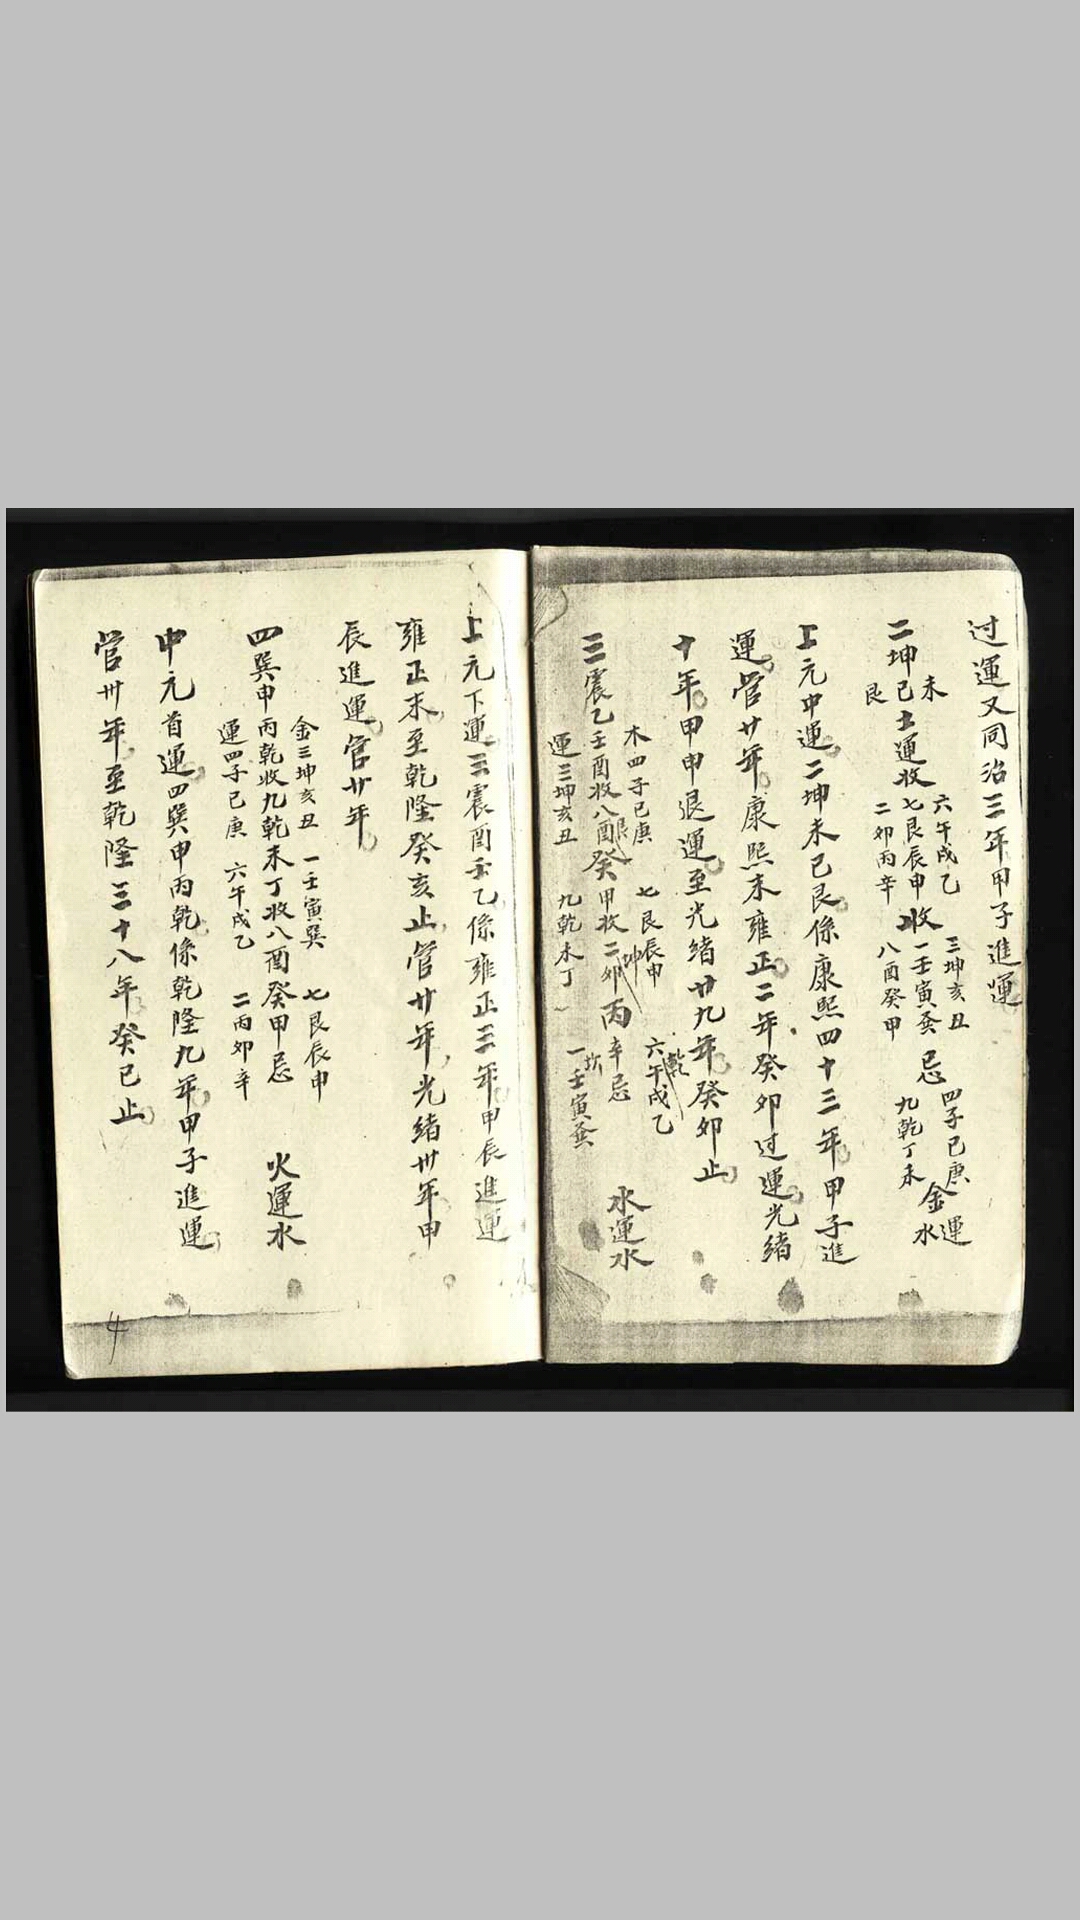 过運又同治三年甲子進運
未
二坤己土運收
艮
六午戌乙
七艮辰申
二卯丙辛
收
三坤亥丑
一壬寅巽
八酉癸甲
忌
四子己庚
九乾丁未
金運
水
上元中運二坤未己艮係康熙四十三年甲子進
運管廿年康熙末雍正二年癸卯过運光緒
十年甲申退運至光緒廿九年癸卯止
木四子己庚
三震乙壬酉收八酉癸甲收二卯丙辛忌
運三坤亥丑
艮
七艮辰申
九乾未丁
坤
乾
六午戌乙
坎
一壬寅巽
水運水
上元下運三震酉壬乙係雍正三年甲辰進運
雍正末至乾隆癸亥止管廿年光緒卅年甲
辰進運管廿年
金三坤亥丑
一壬寅巽
七艮辰申
四巽申丙乾收九乾未丁收八酉癸甲忌
運四子己庚
六午戌乙
二丙卯辛
火運水
中元首運四巽申丙乾係乾隆九年甲子進運
管卅年至乾隆三十八年癸巳止
4